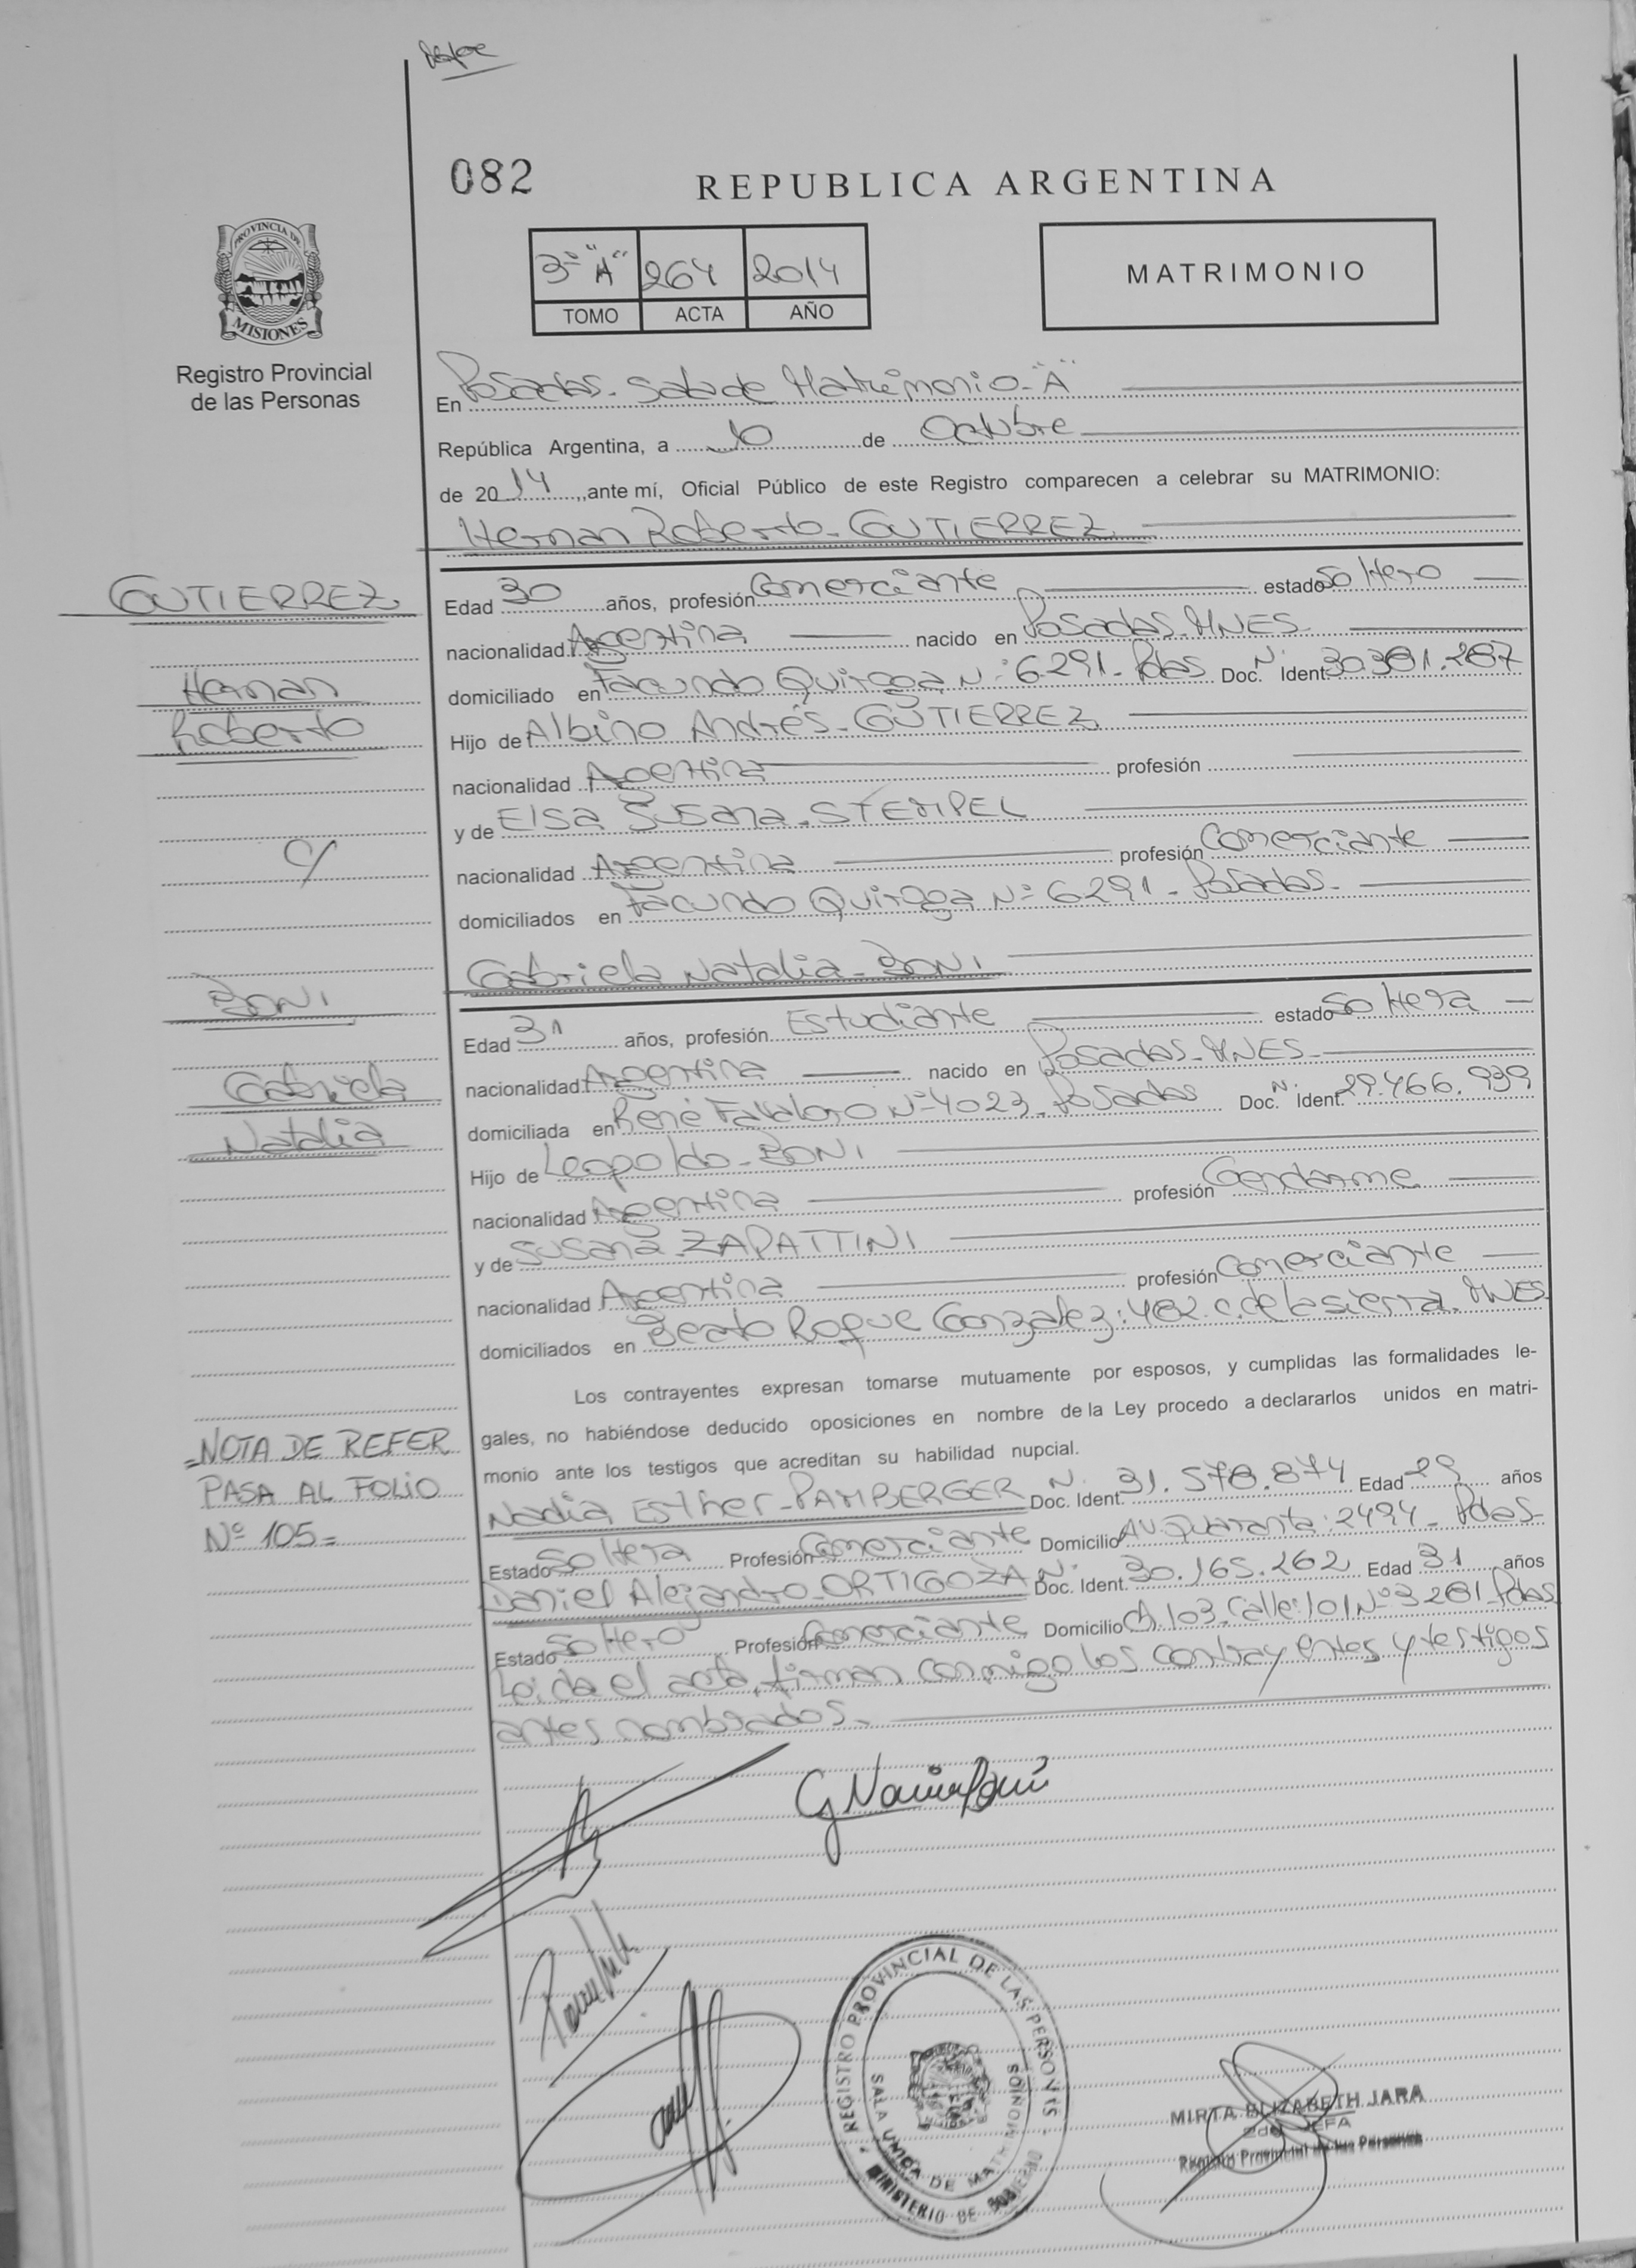 082
REPUBLICA ARGENTINA
PROVINCIA DE
MISIONES
Registro Provincial
de las Personas
3º "A" 264 2014
TOMO ACTA AÑO
MATRIMONIO
En Posadas - Sala de Matrimonio - "A"
República Argentina, a 10 de Octubre
de 2014, ante mí, Oficial Público de este Registro comparecen a celebrar su MATRIMONIO:
Hernan Roberto - GUTIERREZ
GUTIERREZ
Hernan
Roberto
c/
Edad 30 años, profesión Comerciante estado Soltero
nacionalidad Argentina nacido en Posadas - MNES
domiciliado en Facundo Quiroga Nº: 6291 - Pdas Doc. Nº Ident. 30.381.287
Hijo de Albino Andrés - GUTIERREZ
nacionalidad Argentina profesión
y de Elsa Susana - STEMPEL
nacionalidad Argentina profesión Comerciante
domiciliados en Facundo Quiroga Nº 6291 - Posadas -
Gabriela Natalia - BONI
BONI
Gabriela
Natalia
Edad 31 años, profesión Estudiante estado Soltera
nacionalidad Argentina nacido en Posadas - MNES
domiciliada en René Favaloro Nº 4023 - Posadas Doc. Nº Ident. 29.466.939
Hijo de Leopoldo - BONI
nacionalidad Argentina profesión Gendarme
y de Susana - ZAPATTINI
nacionalidad Argentina profesión Comerciante
domiciliados en Beato Roque Gonzalez: 482 - C. de la sierra - MNES
Los contrayentes expresan tomarse mutuamente por esposos, y cumplidas las formalidades le-
gales, no habiéndose deducido oposiciones en nombre de la Ley procedo a declararlos unidos en matri-
monio ante los testigos que acreditan su habilidad nupcial.
= NOTA DE REFER
PASA AL FOLIO
Nº 105 =
Nadia Esther - PAMBERGER Nº Doc. Ident. 31.578.874 Edad 29 años
Estado Soltera Profesión Comerciante Domicilio AV. Quaranta: 2494 - Pdas -
Daniel Alejandro - ORTIGOZA Nº Doc. Ident. 30.165.262 Edad 31 años
Estado Soltero Profesión Comerciante Domicilio Ch 103 - Calle: 101 Nº 3281 - Pdas
Leida el acta, firman conmigo los contrayentes y testigos
antes nombrados -
REGISTRO PROVINCIAL DE LAS PERSONAS
SALA UNICA DE MATRIMONIOS
MINISTERIO DE GOBIERNO
MIRTA ELIZABETH JARA
2da JEFA
Registro Provincial de las Personas